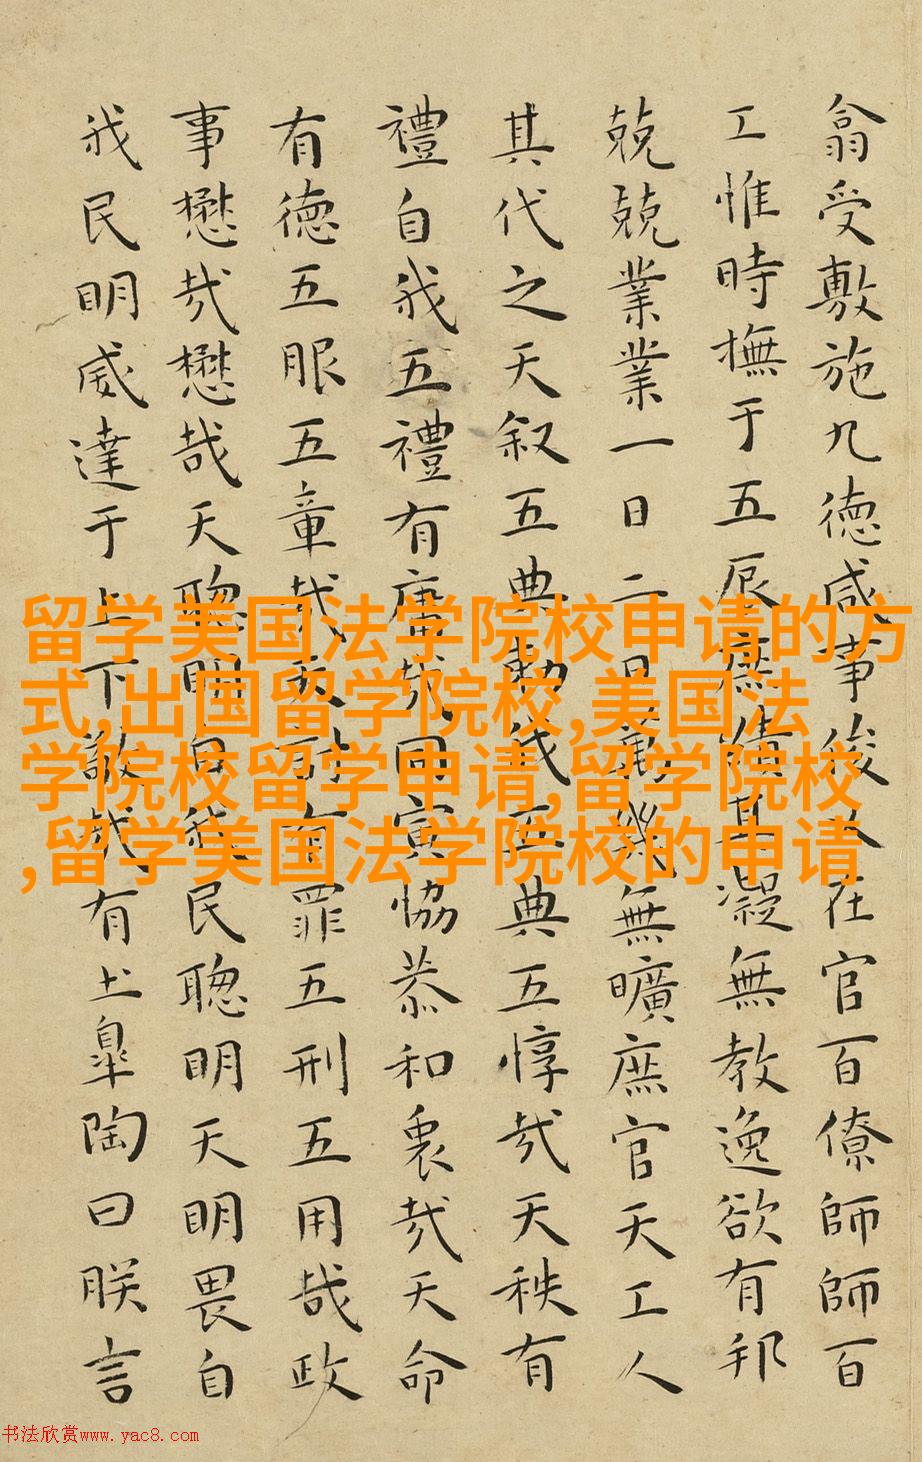 翕受敷施九德咸事俊乂在官百僚師師百
工惟時撫于五辰庶績其凝無教逸欲有邦
兢兢業業一日二日萬幾無曠庶官天工人
其代之天叙五典勅我五典五惇哉天秩有
禮自我五禮有庸哉同寅協恭和衷哉天命
有德五服五章哉天討有罪五刑五用哉政
事懋哉懋哉天聰明自我民聰明天明畏自
我民明威達于上下敬哉有土皋陶曰朕言
留学美国法学院校申请的方
式,出国留学院校,美国法
学院校留学申请,留学院校
,留学美国法学院校的申请
书法欣赏www.yac8.com